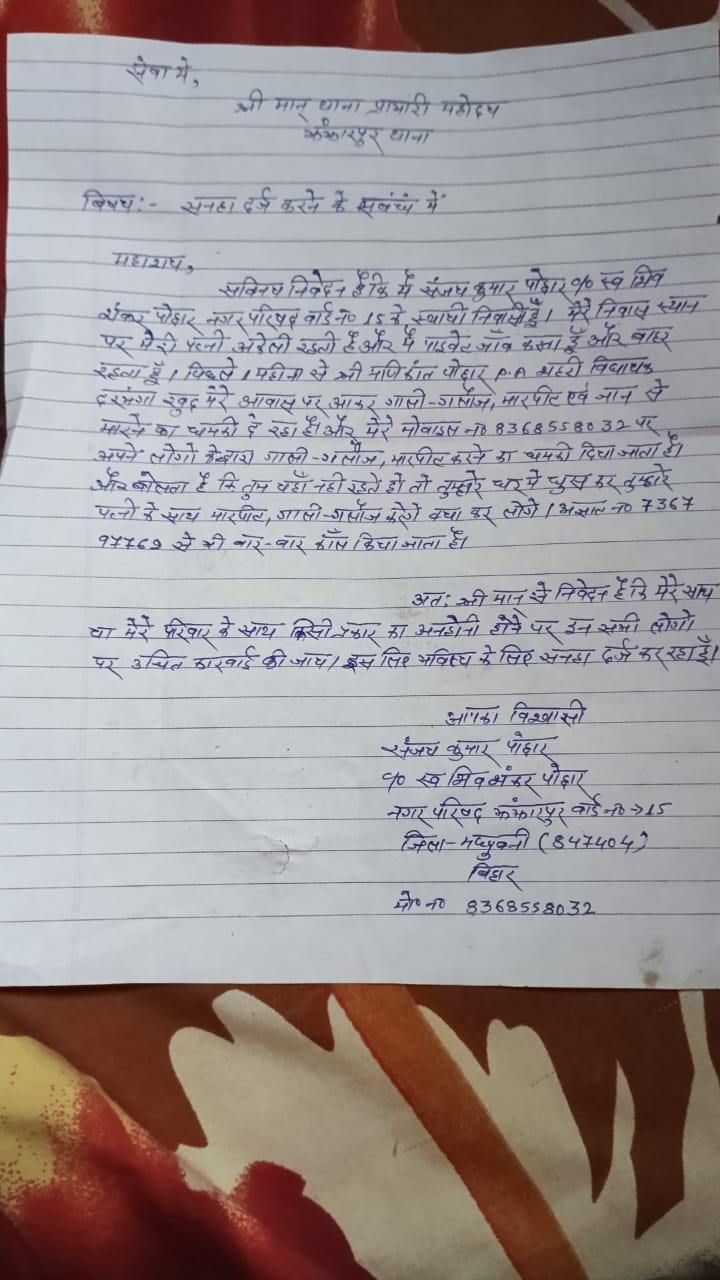 सेवा मे,
श्री मान् थाना प्रभारी महोदय
झंझारपुर थाना
बिषय:- सनहा दर्ज करने के सबंधं में
महाशय,
सविनय निवेदन है कि मैं संजय कुमार पोद्दार c/o स्व शिव
शंकर पोद्दार नगर परिषद वार्ड no 15 के स्थायी निवासी हूँ। मेरे निवास स्थान
पर मेरी पत्नी अकेली रहती है और मैं प्राइवेट जॉब करता हूँ और बाहर
रहता हूँ। पिछले 1 महीना से श्री मणिकांत पोद्दार P.A शहरी विधायक
दरभंगा खुद मेरे आवास पर आकर गाली-गलौज, मारपीट एवं जान से
मारने का धमकी दे रहा है। और मेरे मोबाइल no 8368558032 पर
अपने लोगों के द्वारा गाली-गलौज, मारपीट करने का धमकी दिया जाता है।
और बोलता है कि तुम यहाँ नही रहते हो तो तुम्हारे घर मे घुस कर तुम्हारे
पत्नी के साथ मारपीट, गाली-गलौज करेगे क्या कर लोगे। अज्ञात no 7367
97769 से भी बार-बार कॉल किया जाता है।
अत: श्री मान् से निवेदन है कि मेरे साथ
या मेरे परिवार के साथ किसी प्रकार का अनहोनी होने पर इन सभी लोगो
पर उचित कारवाई की जाय। इस लिए भविष्य के लिए सनहा दर्ज कर रहा हूँ।
आपका विश्वासी
संजय कुमार पोद्दार
c/o स्व शिव शंकर पोद्दार
नगर परिषद झंझारपुर वार्ड no → 15
जिला-मधुबनी (847404)
बिहार
मो० no 8368558032